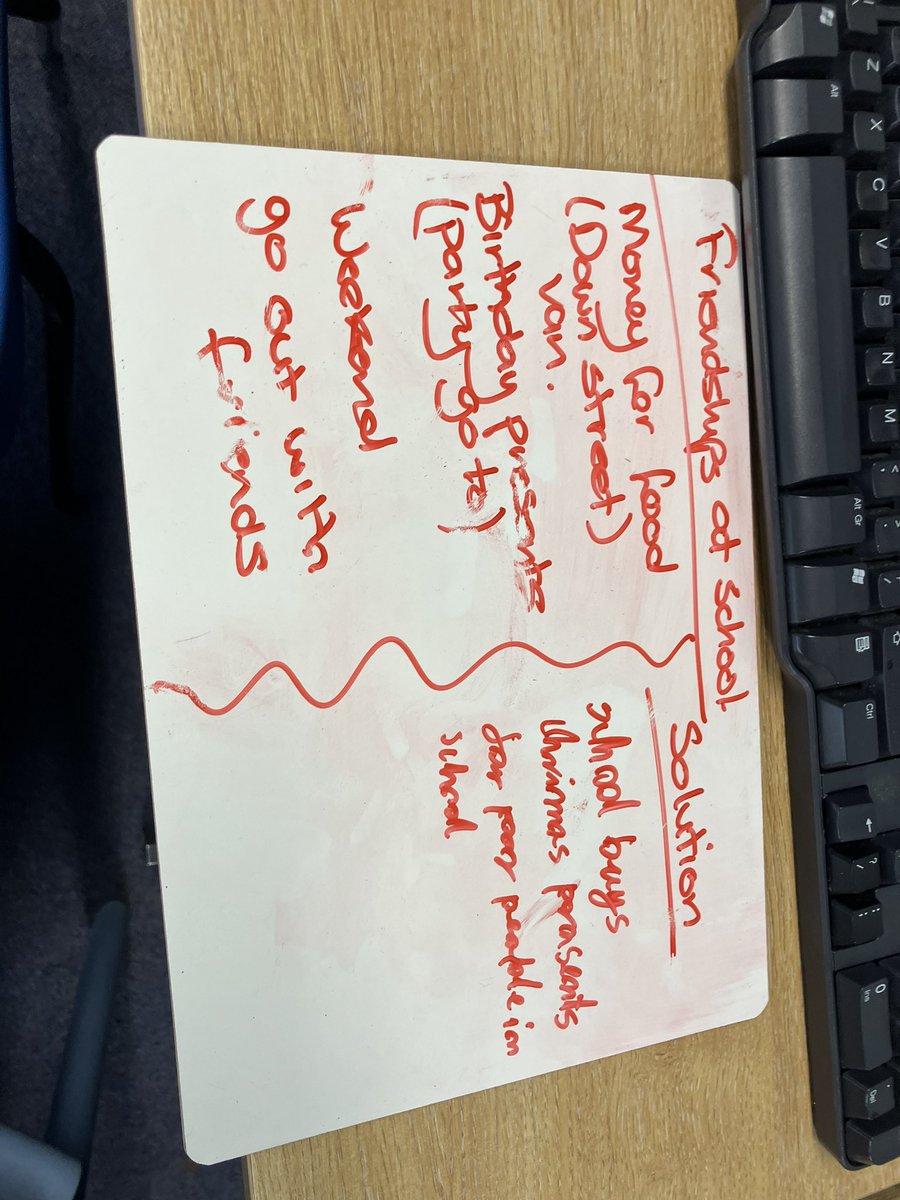 Friendships at school
Money for food
(Down street)
van.
Birthday presents
(party go to)
Weekend
go out with
friends
Solution
school buys
chrimas prasents
for poor people in
school
Alt
Z
X
C
V
B
N
M
Alt Gr
Ctrl
0
Ins
Del